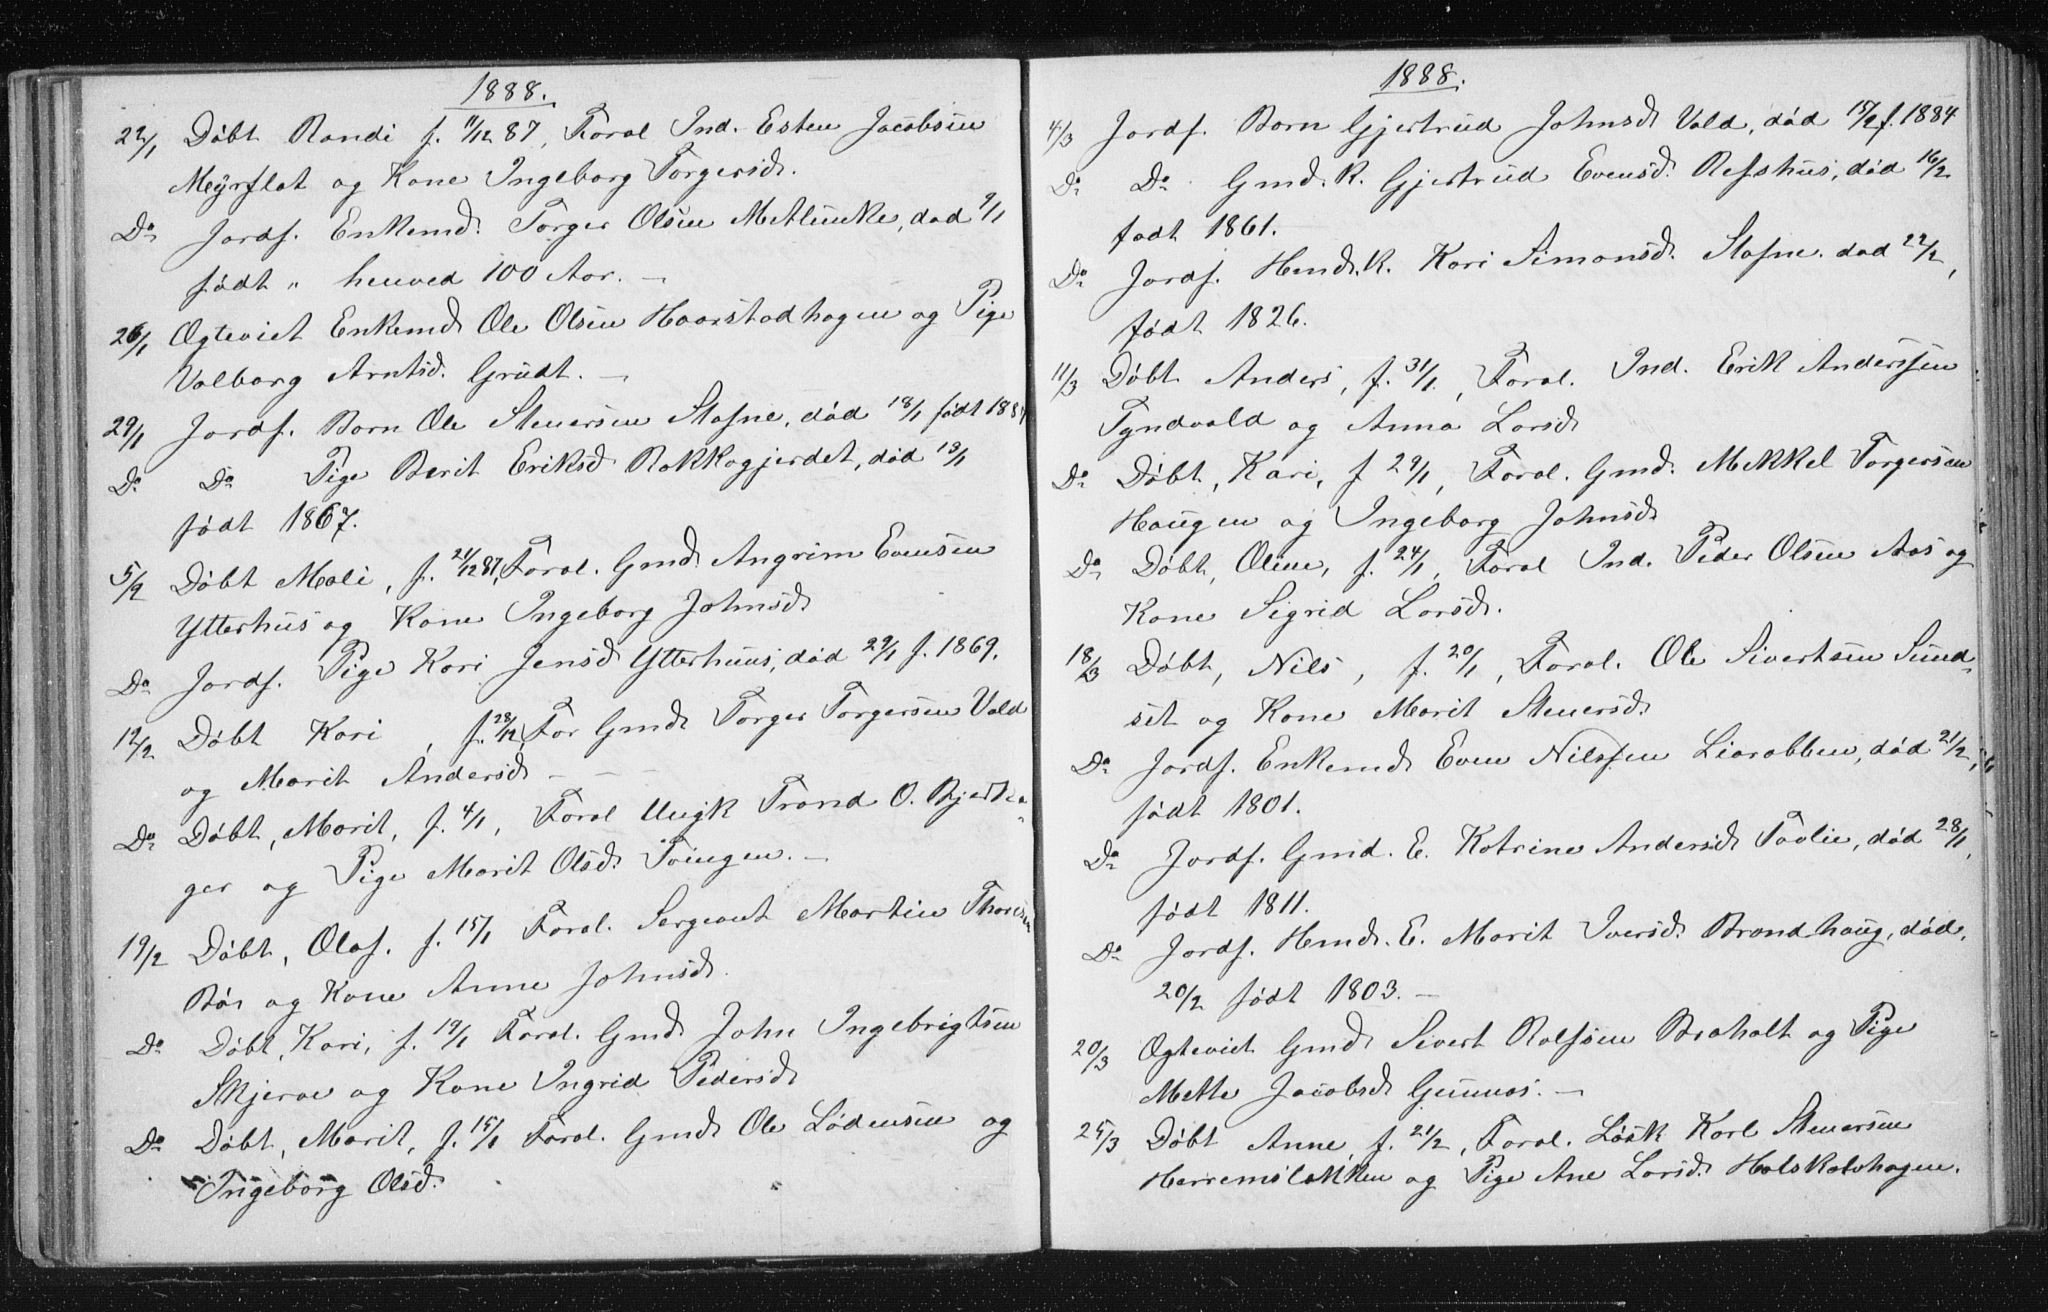 1888.
22/1 Døbt Randi f. 11/12 87, Foral Ind. Esten Jacobsen
Meyrflat og Kone Ingeborg Torgersd.
Do Jordf. Enkemd. Torger Olsen Metlimke, død 9/1
født " henved 100 Aar. —
26/1 Ægteviet Enkemd. Ole Olsen Haarstadhagen og Pige
Valborg Arntsd. Grudt. —
29/1 Jordf. Barn Ole Stenersen Stafne, død 18/1 født 188
Do Do Pige Berit Eriksd. Rokkogjerdet, død 13/1
født 1867.
5/2 Døbt Mali, f. 21/12 87, Foral. Gmd. Angrim Evensen
Ytterhus og Kone Ingeborg Johnsd.
Do Jordf. Pige Kari Jensd. Ytterhuus, død 29/1 f. 1869.
12/2 Døbt Kari, f. 28/12, For Gmd. Torger Torgersen Vold
og Marit Andersd. — — —
Do Døbt, Marit, f. 4/1, Foral Ungk Trond O. Bjerke-
ger og Pige Marit Olsd. Tvingen. —
19/2 Døbt, Olaf. f. 15/1 Foral. Sergeant Martin Thoresen
Bør og Kone Anne Johnsd.
Do Døbt, Kari, f. 19/1 Foral. Gmd. John Ingebrigtsen
Skjerve og Kone Ingrid Pedersd.
Do Døbt, Marit, f. 15/1 Foral. Gmd. Ole Lødensen og
Ingeborg Olsd.
1888.
4/3 Jordf. Barn Gjertrud Johnsd. Vold, død 15/2 f. 1884
Do Do Gmd. K. Gjertrud Evensd. Refshus, død 16/2
født 1861.
Do Jordf. Hmd. K. Kari Simonsd. Stafne. død 22/2,
født 1826.
11/3 Døbt Anders, f. 31/1, Foral. Ind. Erik Anderssen
Tyndvold og Anna Larsd.
Do Døbt, Kari, f 29/1, Foral. Gmd. Mekkel Torgersen
Haugen og Ingeborg Johnsd.
Do Døbt, Oline, f. 24/1, Foral Ind. Peder Olsen Aas og
Kone Sigrid Larsd.
18/3 Døbt, Nils, f. 20/1, Foral. Ole Sivertsen Sund-
set og Kone Marit Stenersd.
Do Jordf. Enkemd. Even Nilssen Liarabben, død 21/2,
født 1801.
Do Jordf. Gmd. E. Katrine Andersd. Tavlie, død 28/1,
født 1811.
Do Jordf. Hmd. E. Marit Iversd. Brandhaug, død,
20/2 født 1803. —
20/3 Ægteviet Gmd. Sivert Rolfsen Braholt og Pige
Mette Jacobsd. Gunnes. —
25/3 Døbt Anne, f. 21/2, Foral. Løsk Karl Stenersen
Herremsløkken og Pige Ane Larsd. Halskalvhagen.